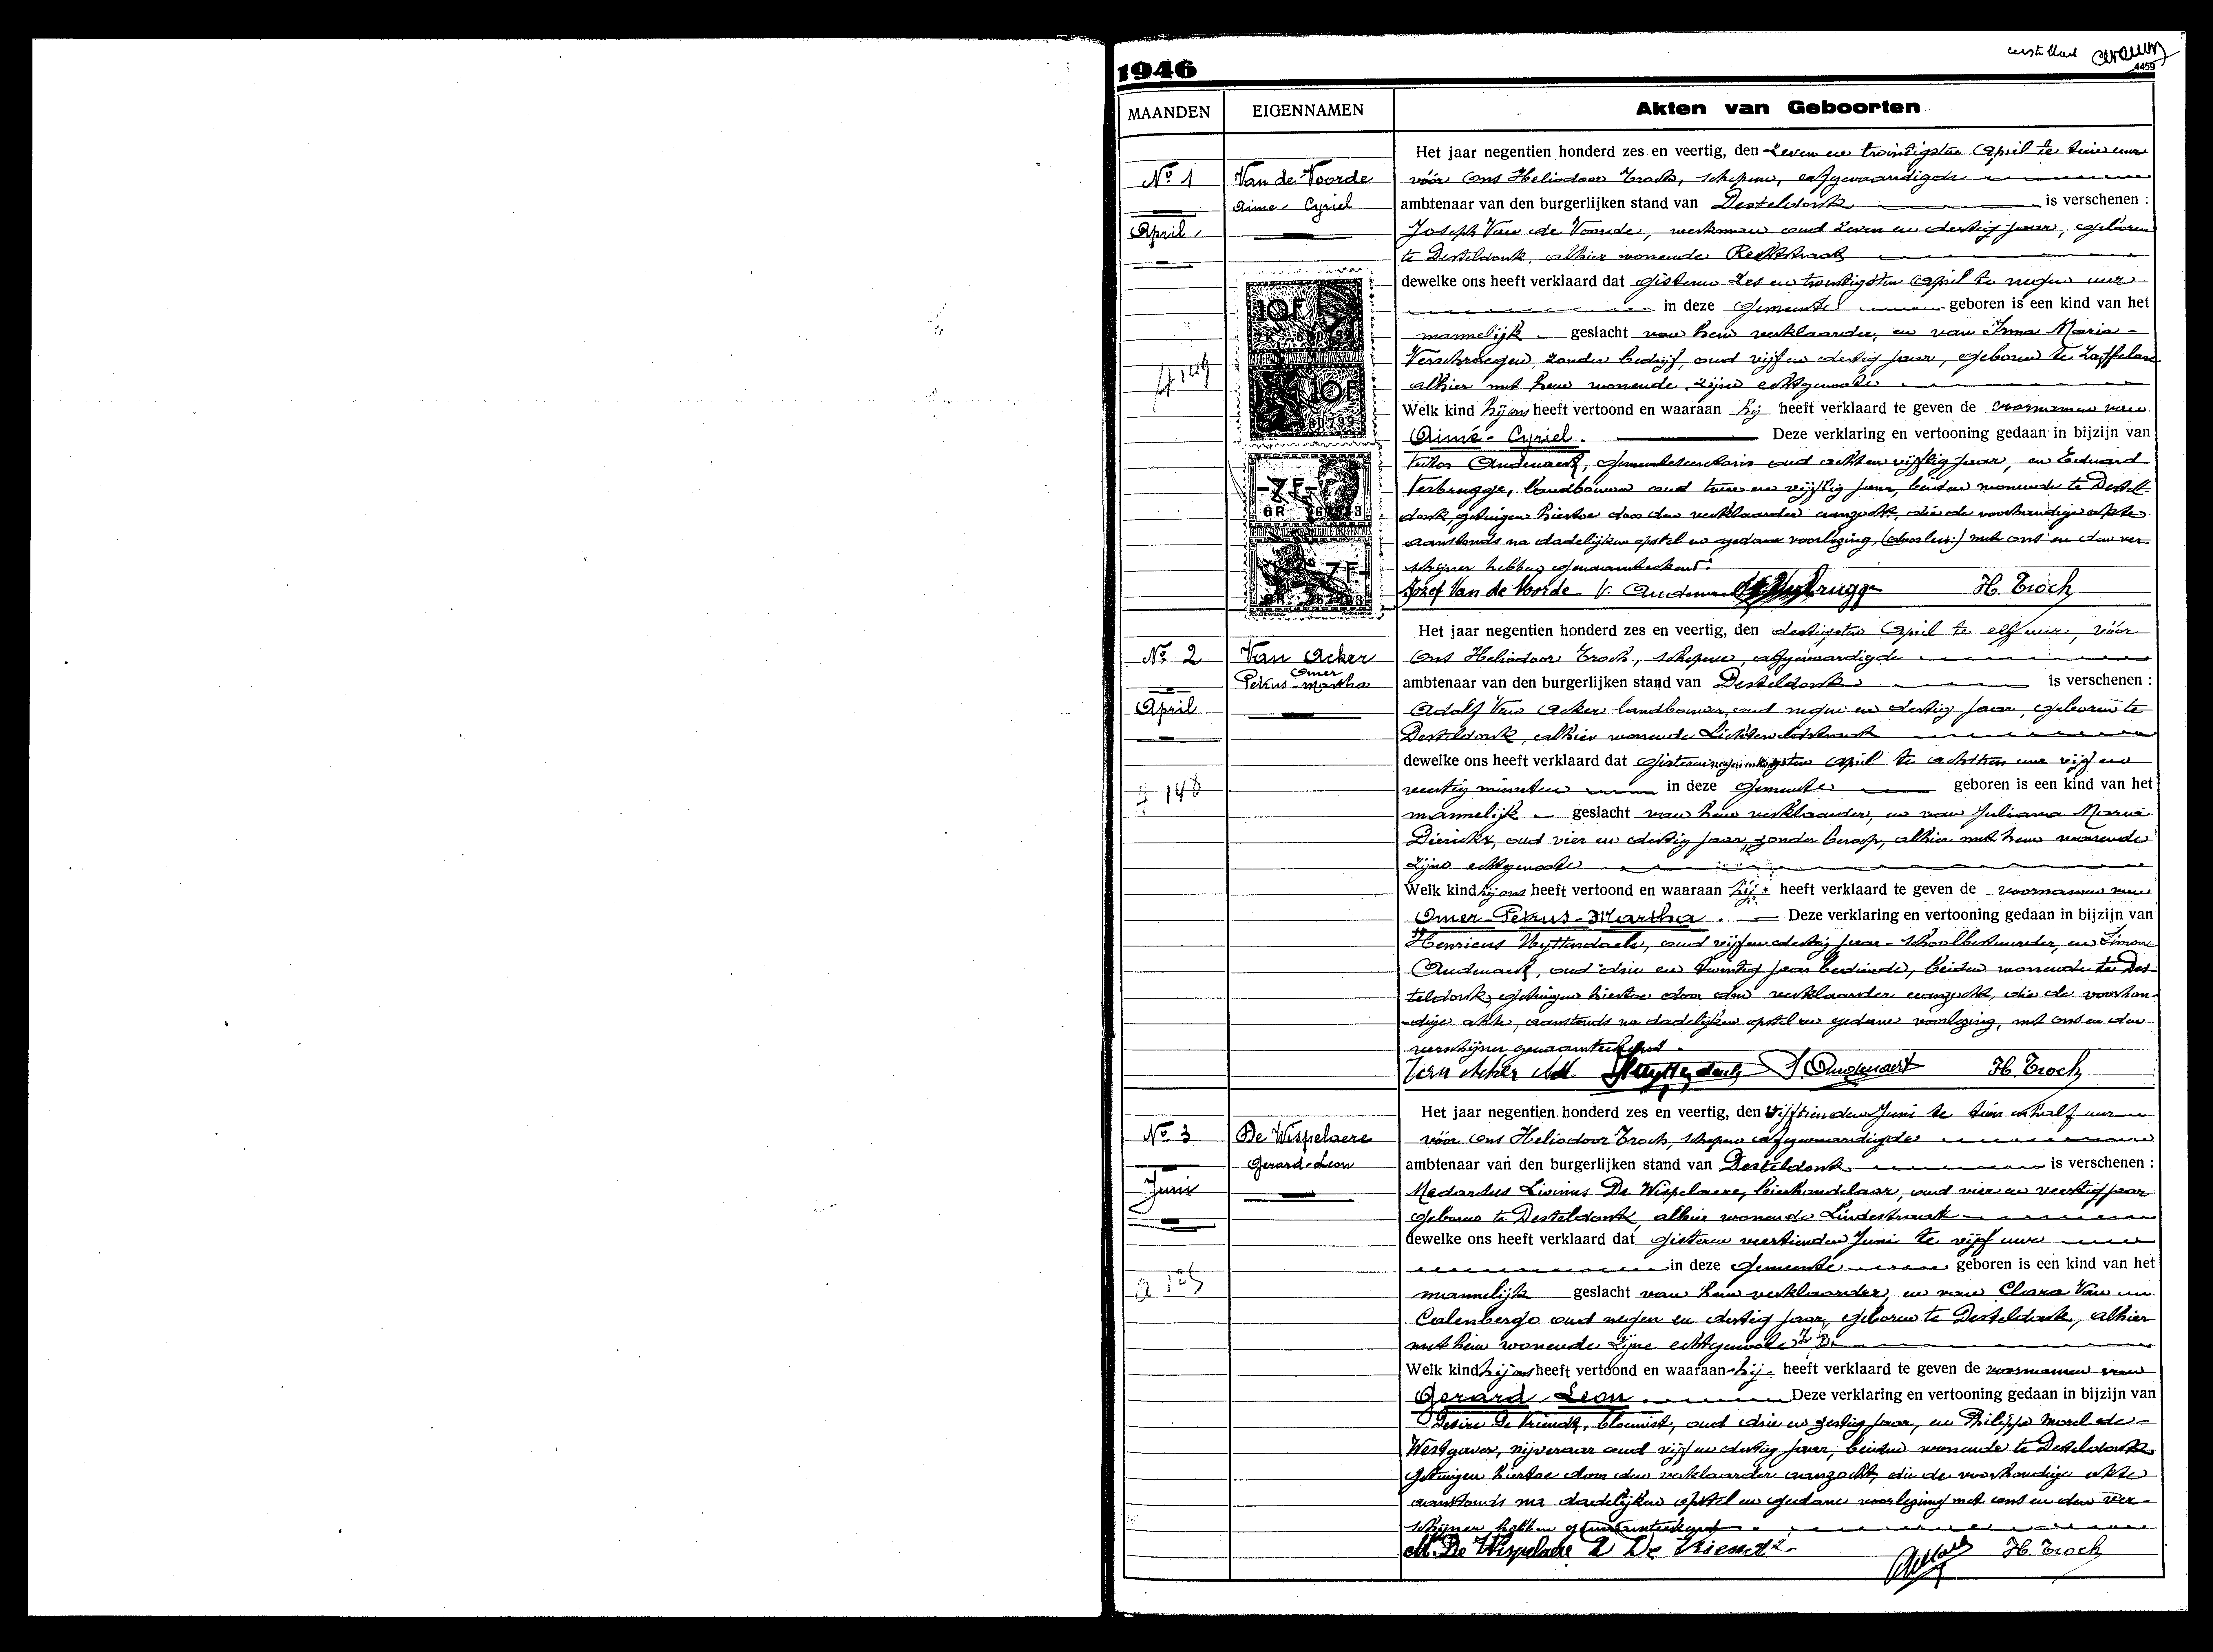 1946
4459
MAANDEN EIGENNAMEN Akten van Geboorten
Het jaar negentien honderd zes en veertig, den zeven en twintigsten April te tien uur
No 1 Van de Voorde vóór Ons Heliodoor Troch, schepene, afgevaardigde
Aimé-Cyriel ambtenaar van den burgerlijken stand van Desteldonk is verschenen :
April Joseph Van de Voorde, werkman oud zeven en dertig jaar, geboren
te Desteldonk, alhier wonende Rechtstraat
dewelke ons heeft verklaard dat gisteren zes en twintigsten April te negen uur
in deze Gemeente geboren is een kind van het
mannelijk geslacht van hem verklaarder, en van Irma Maria
Verschraegen, zonder bedrijf, oud vijf en dertig jaar, geboren te Zaffelare
alhier met hem wonende zijne echtgenoote
Welk kind hij ons heeft vertoond en waaraan hij heeft verklaard te geven de voornamen van
Aimé-Cyriel. Deze verklaring en vertooning gedaan in bijzijn van
Audenaert, Gemeentesecretaris oud acht en vijftig jaar, en Eduard
Verbrugge, landbouwer oud twee en vijftig jaar, beiden wonende te Destel-
donk, getuigen hiertoe door den verklaarder aanzocht, die de voorhandige akte
aanstonds na dadelijken opstel en gedane voorlezing, met ons en den ver-
schijner hebben genaamteekend.
Jozef Van de Voorde V. Audenaert Verbrugge H. Troch
10F
10F
7F
7F
Het jaar negentien honderd zes en veertig, den dertigsten April te elf uur, vóór
No 2 Van Acker Ons Heliodoor Troch, schepene, afgevaardigde
Omer
Petrus-Martha ambtenaar van den burgerlijken stand van Desteldonk is verschenen :
April Adolf Van Acker landbouwer, oud negen en dertig jaar, geboren te
Desteldonk, alhier wonende Lichtelaarstraat
dewelke ons heeft verklaard dat gisteren negen en twintigsten April te achttien uur vijf en
veertig minuten in deze Gemeente geboren is een kind van het
mannelijk geslacht van hem verklaarder, en van Juliana Maria
Dierickx, oud vier en dertig jaar, zonder beroep, alhier met hem wonende
zijne echtgenoote
Welk kind hij ons heeft vertoond en waaraan hij heeft verklaard te geven de voornamen van
Omer-Petrus-Martha. Deze verklaring en vertooning gedaan in bijzijn van
Henricus Uyttendaele, oud vijf en dertig jaar schoolbestuurder, en Simone
Audenaert, oud drie en twintig jaar bediende, beiden wonende te Des-
teldonk, getuigen hiertoe door den verklaarder aanzocht, die de voorhan-
dige akte, aanstonds na dadelijken opstel en gedane voorlezing, met ons en den
verschijner genaamteekend.
Van Acker Ad Huyttendaele S. Audenaert H. Troch
Het jaar negentien honderd zes en veertig, den vijftienden Juni te tien en half uur
No 3 De Wispelaere vóór Ons Heliodoor Troch, schepene afgevaardigde
Gerard-Leon ambtenaar van den burgerlijken stand van Desteldonk is verschenen :
Juni Medardus Livinus De Wispelaere, bierhandelaar, oud vier en veertig jaar
geboren te Desteldonk, alhier wonende Lindestraat
dewelke ons heeft verklaard dat gisteren veertienden Juni te vijf uur
in deze Gemeente geboren is een kind van het
mannelijk geslacht van hem verklaarder, en van Clara Van
Calenberge oud negen en dertig jaar, geboren te Desteldonk, alhier
met hem wonende zijne echtgenoote Z. B.
Welk kind hij ons heeft vertoond en waaraan hij heeft verklaard te geven de voornamen van
Gerard Leon. Deze verklaring en vertooning gedaan in bijzijn van
Desiré De Vriendt, bloemist, oud drie en zestig jaar, en Philippe Morel de
Westgaver, nijveraar oud vijf en dertig jaar, beiden wonende te Desteldonk
getuigen hiertoe door den verklaarder aanzocht, die de voorhandige akte
aanstonds na dadelijken opstel en gedane voorlezing met ons en den ver-
schijner hebben genaamteekend.
M. De Wispelaere D De Vriendt H. Troch